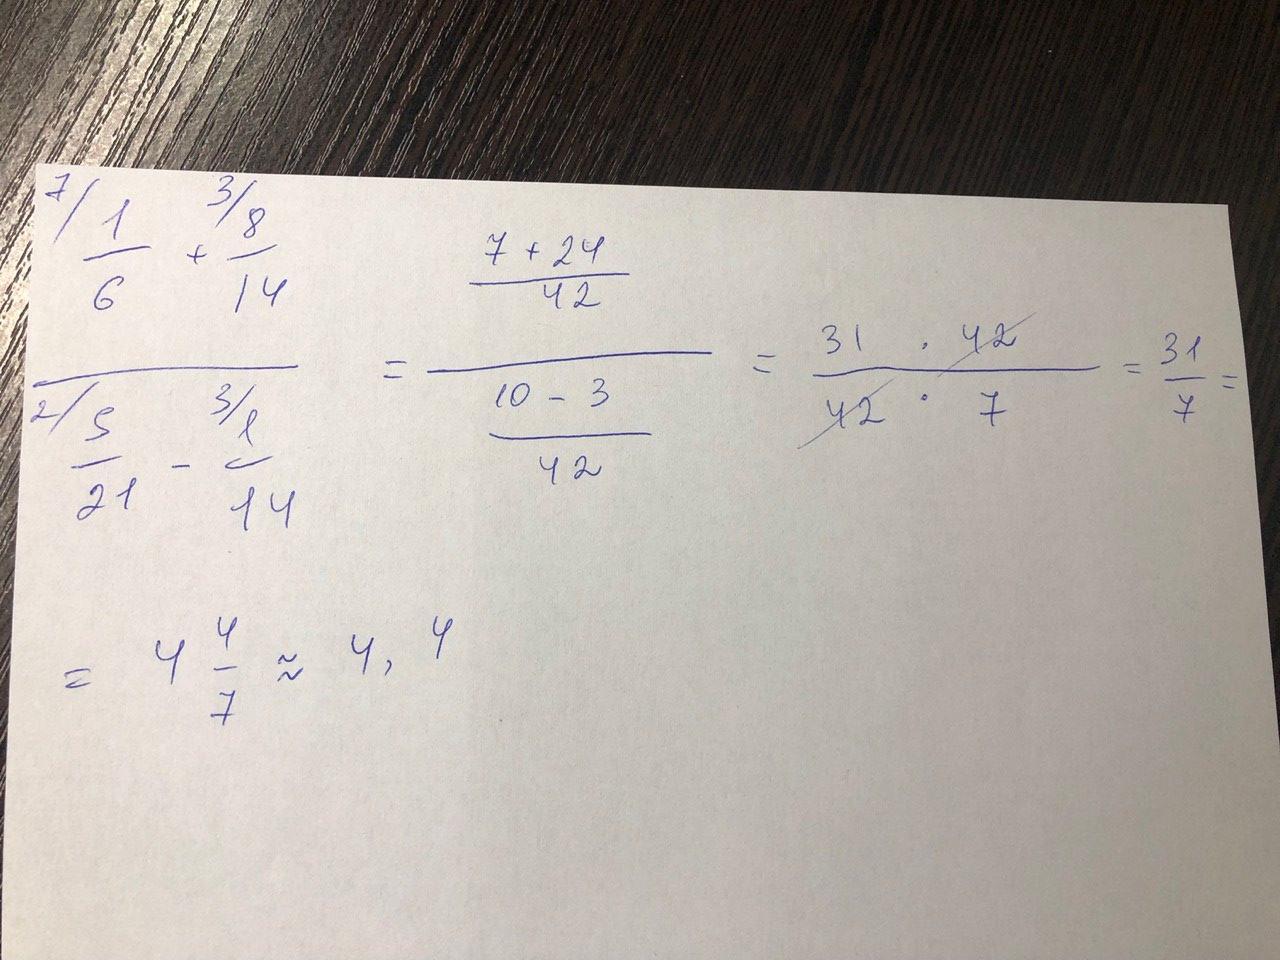 7/ 1/6 + 3/ 8/14
2/ 5/21 - 3/ 1/14
= (7 + 24)/42
(10 - 3)/42
= (31 · 42)/(42 · 7) = 31/7 =
= 4 4/7 ≈ 4,4